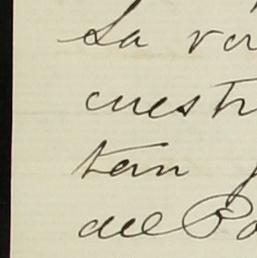 La ver
cuestr
tan
del Po